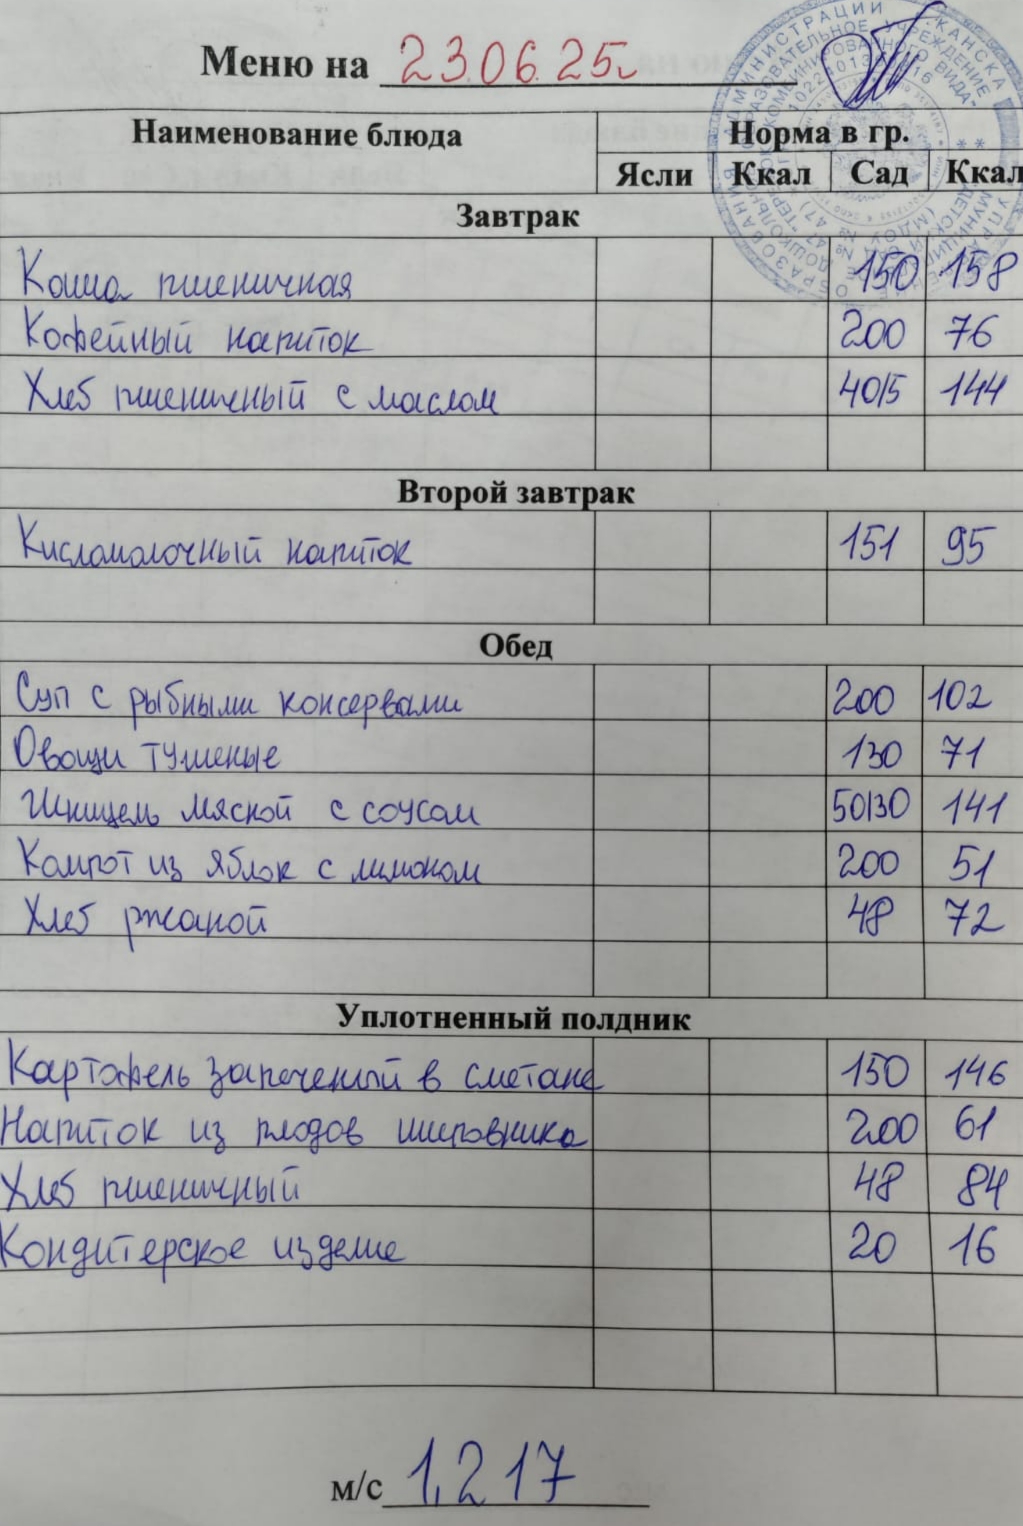 Меню на 23.06.25г
Наименование блюда Норма в гр.
Ясли Ккал Сад Ккал
Завтрак
Каша пшеничная 150 158
Кофейный напиток 200 76
Хлеб пшеничный с маслом 40/5 144
Второй завтрак
Кисломолочный напиток 151 95
Обед
Суп с рыбными консервами 200 102
Овощи тушеные 130 71
Шницель мясной с соусом 50/30 141
Компот из яблок с лимоном 200 51
Хлеб ржаной 48 72
Уплотненный полдник
Картофель запеченный в сметане 150 146
Напиток из плодов шиповника 200 61
Хлеб пшеничный 48 84
Кондитерское изделие 20 16
м/с 1,217